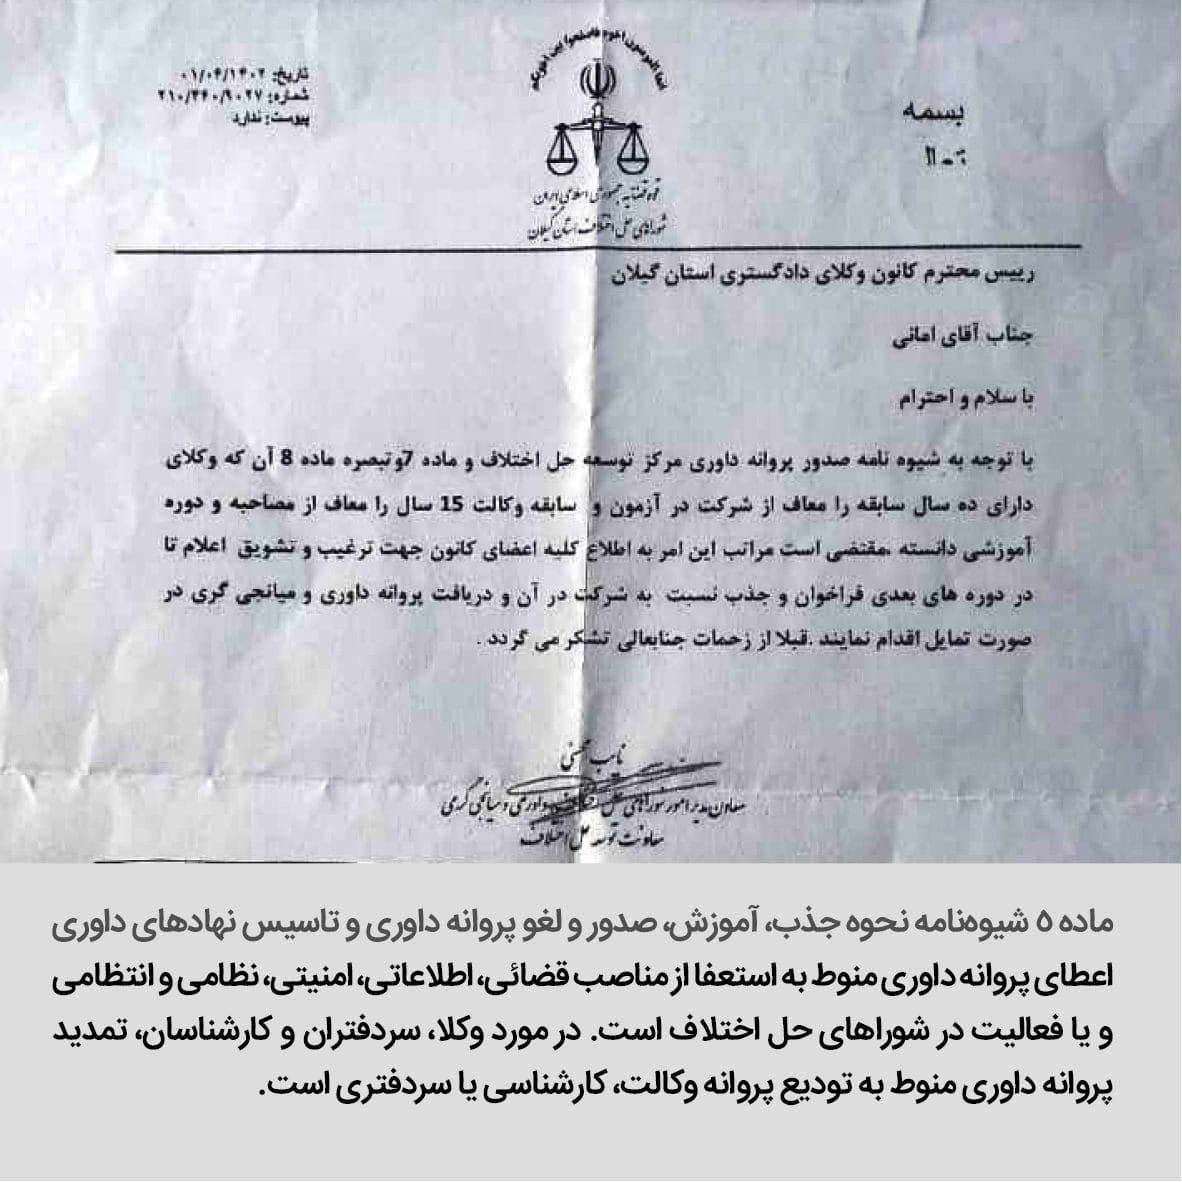 انما المومنون اخوه فاصلحوا بین اخویکم
بسمه
تاریخ: ۰۱/۰۴/۱۴۰۲
شماره: ۲۱۰/۳۴۰/۹۰۲۷
پیوست: ندارد
قوه قضائیه جمهوری اسلامی ایران
شوراهای حل اختلاف استان گیلان
رییس محترم کانون وکلای دادگستری استان گیلان
جناب آقای امانی
با سلام و احترام
با توجه به شیوه نامه صدور پروانه داوری مرکز توسعه حل اختلاف و ماده 7وتبصره ماده 8 آن که وکلای
دارای ده سال سابقه را معاف از شرکت در آزمون و سابقه وکالت 15 سال را معاف از مصاحبه و دوره
آموزشی دانسته .مقتضی است مراتب این امر به اطلاع کلیه اعضای کانون جهت ترغیب و تشویق اعلام تا
در دوره های بعدی فراخوان و جذب نسبت به شرکت در آن و دریافت پروانه داوری و میانجی گری در
صورت تمایل اقدام نمایند .قبلا از زحمات جنابعالی تشکر می گردد .
نایب محسنی
معاون مدیر امور شوراهای حل اختلاف، داوری و میانجی گری
معاونت توسعه حل اختلاف
ماده ۵ شیوه‌نامه نحوه جذب، آموزش، صدور و لغو پروانه داوری و تاسیس نهادهای داوری
اعطای پروانه داوری منوط به استعفا از مناصب قضائی، اطلاعاتی، امنیتی، نظامی و انتظامی
و یا فعالیت در شوراهای حل اختلاف است. در مورد وکلا، سردفتران و کارشناسان، تمدید
پروانه داوری منوط به تودیع پروانه وکالت، کارشناسی یا سردفتری است.